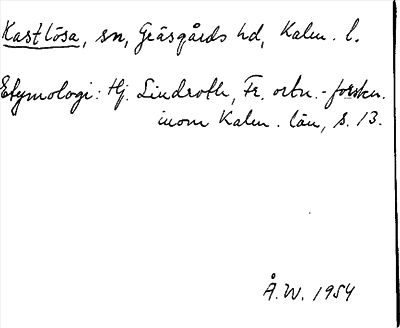 Kastlösa, sn, Gräsgårds hd, Kalm. l.
Etymologi: Hj. Lindroth, Fr. ortn.-forskn.
inom Kalm. län, s. 13.
Å.W. 1954